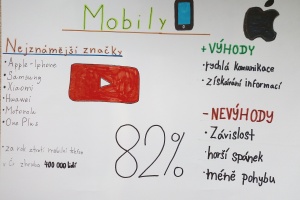 Mobily
Nejznámější značky
• Apple-Iphone
• Samsung
• Xiaomi
• Huawei
• Motorola
• One Plus
• za rok ztratí mobilní telefon
v Čr zhruba 400 000 lidí
82%
+ VÝHODY
• rychlá komunikace
• získávání informací
- NEVÝHODY
• Závislost
• horší spánek
• méně pohybu